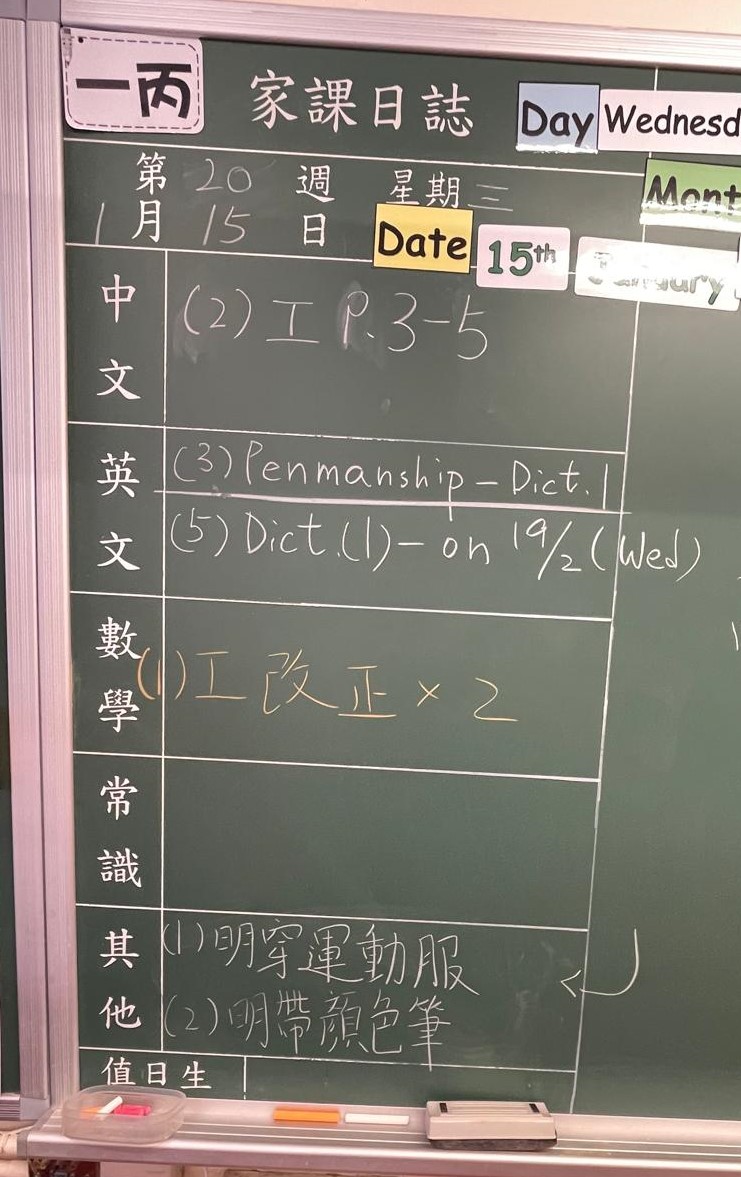 一丙 家課日誌 Day Wednesd
第 20 週 星期三 Mont
1 月 15 日 Date 15th January
中文 (2) 工 P.3-5
英文 (3) Penmanship - Dict. 1
(5) Dict. (1) - on 19/2 (Wed)
數學 (1) 工 改正 × 2
常識
其他 (1) 明穿運動服
(2) 明帶顏色筆
值日生